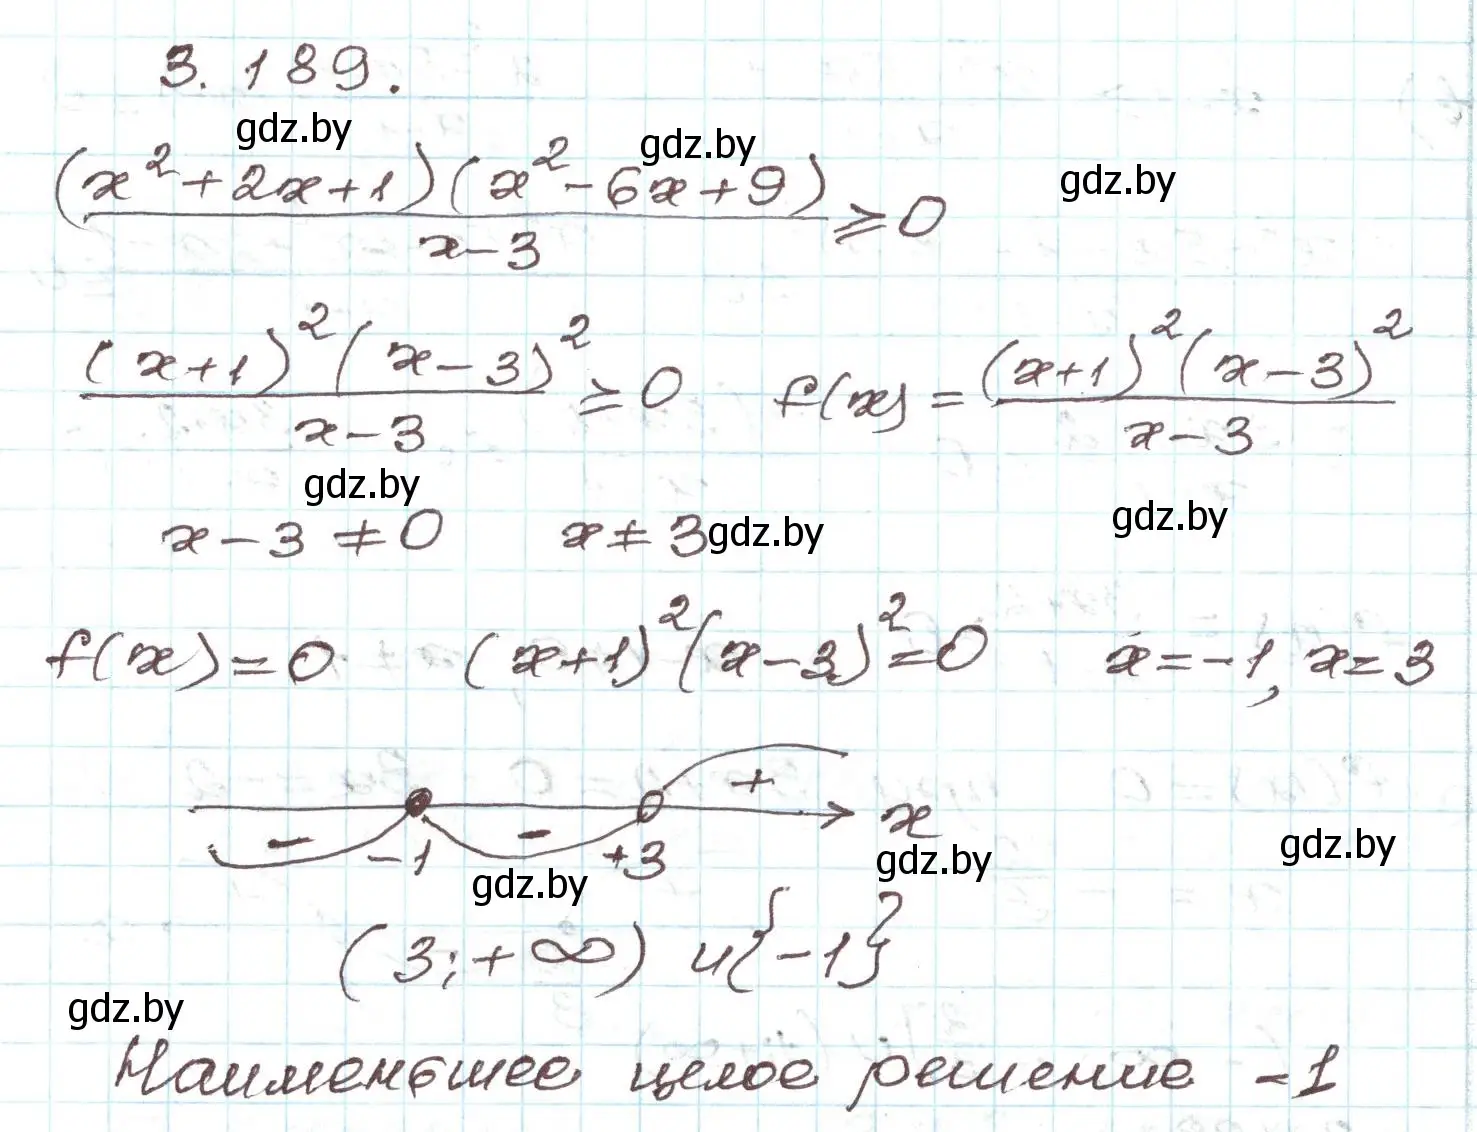 3.189.
gdz.by gdz.by gdz.by
(x²+2x+1)(x²-6x+9)/(x-3) ⩾ 0
(x+1)²(x-3)²/(x-3) ⩾ 0 f(x) = (x+1)²(x-3)²/(x-3)
gdz.by gdz.by
x-3 ≠ 0 x ≠ 3 gdz.by
f(x) = 0 (x+1)²(x-3)² = 0 x = -1, x = 3
- - + x
-1 +3
gdz.by gdz.by gdz.by
(3; +∞) и {-1}
gdz.by
Наименьшее целое решение -1